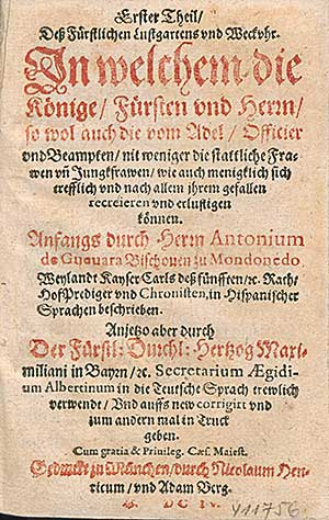 Erster Theil/
Deß Fürstlichen Lustgartens vnd Weckvhr.
In welchem die
Könige/ Fürsten vnd Herrn/
so wol auch die vom Adel/ Officier
vnd Beampten/ nit weniger die stattliche Fra-
wen vn̄ Jungkfrawen/ wie auch menigklich sich
trefflich vnd nach allem jhrem gefallen
recreieren vnd erlustigen
können.
Anfangs durch Herrn Antonium
de Gueuara Bischouen zu Mondonedo
Weylandt Kayser Carls deß fünfften/ ꝛc. Rath/
HofPrediger vnd Chronisten, in Hispanischer
Sprachen beschrieben.
Anjetzo aber durch
Der Fürstl: Durchl: Hertzog Maxi-
miliani in Bayrn/ ꝛc. Secretarium Ægidi-
um Albertinum in die Teutsche Sprach trewlich
verwendt/ Vnd auffs new corrigirt vnd
zum andern mal in Truck
geben.
Cum gratia & Priuileg. Cæs. Maiest.
Gedruckt zu München/ durch Nicolaum Hen-
ricum/ vnd Adam Berg.